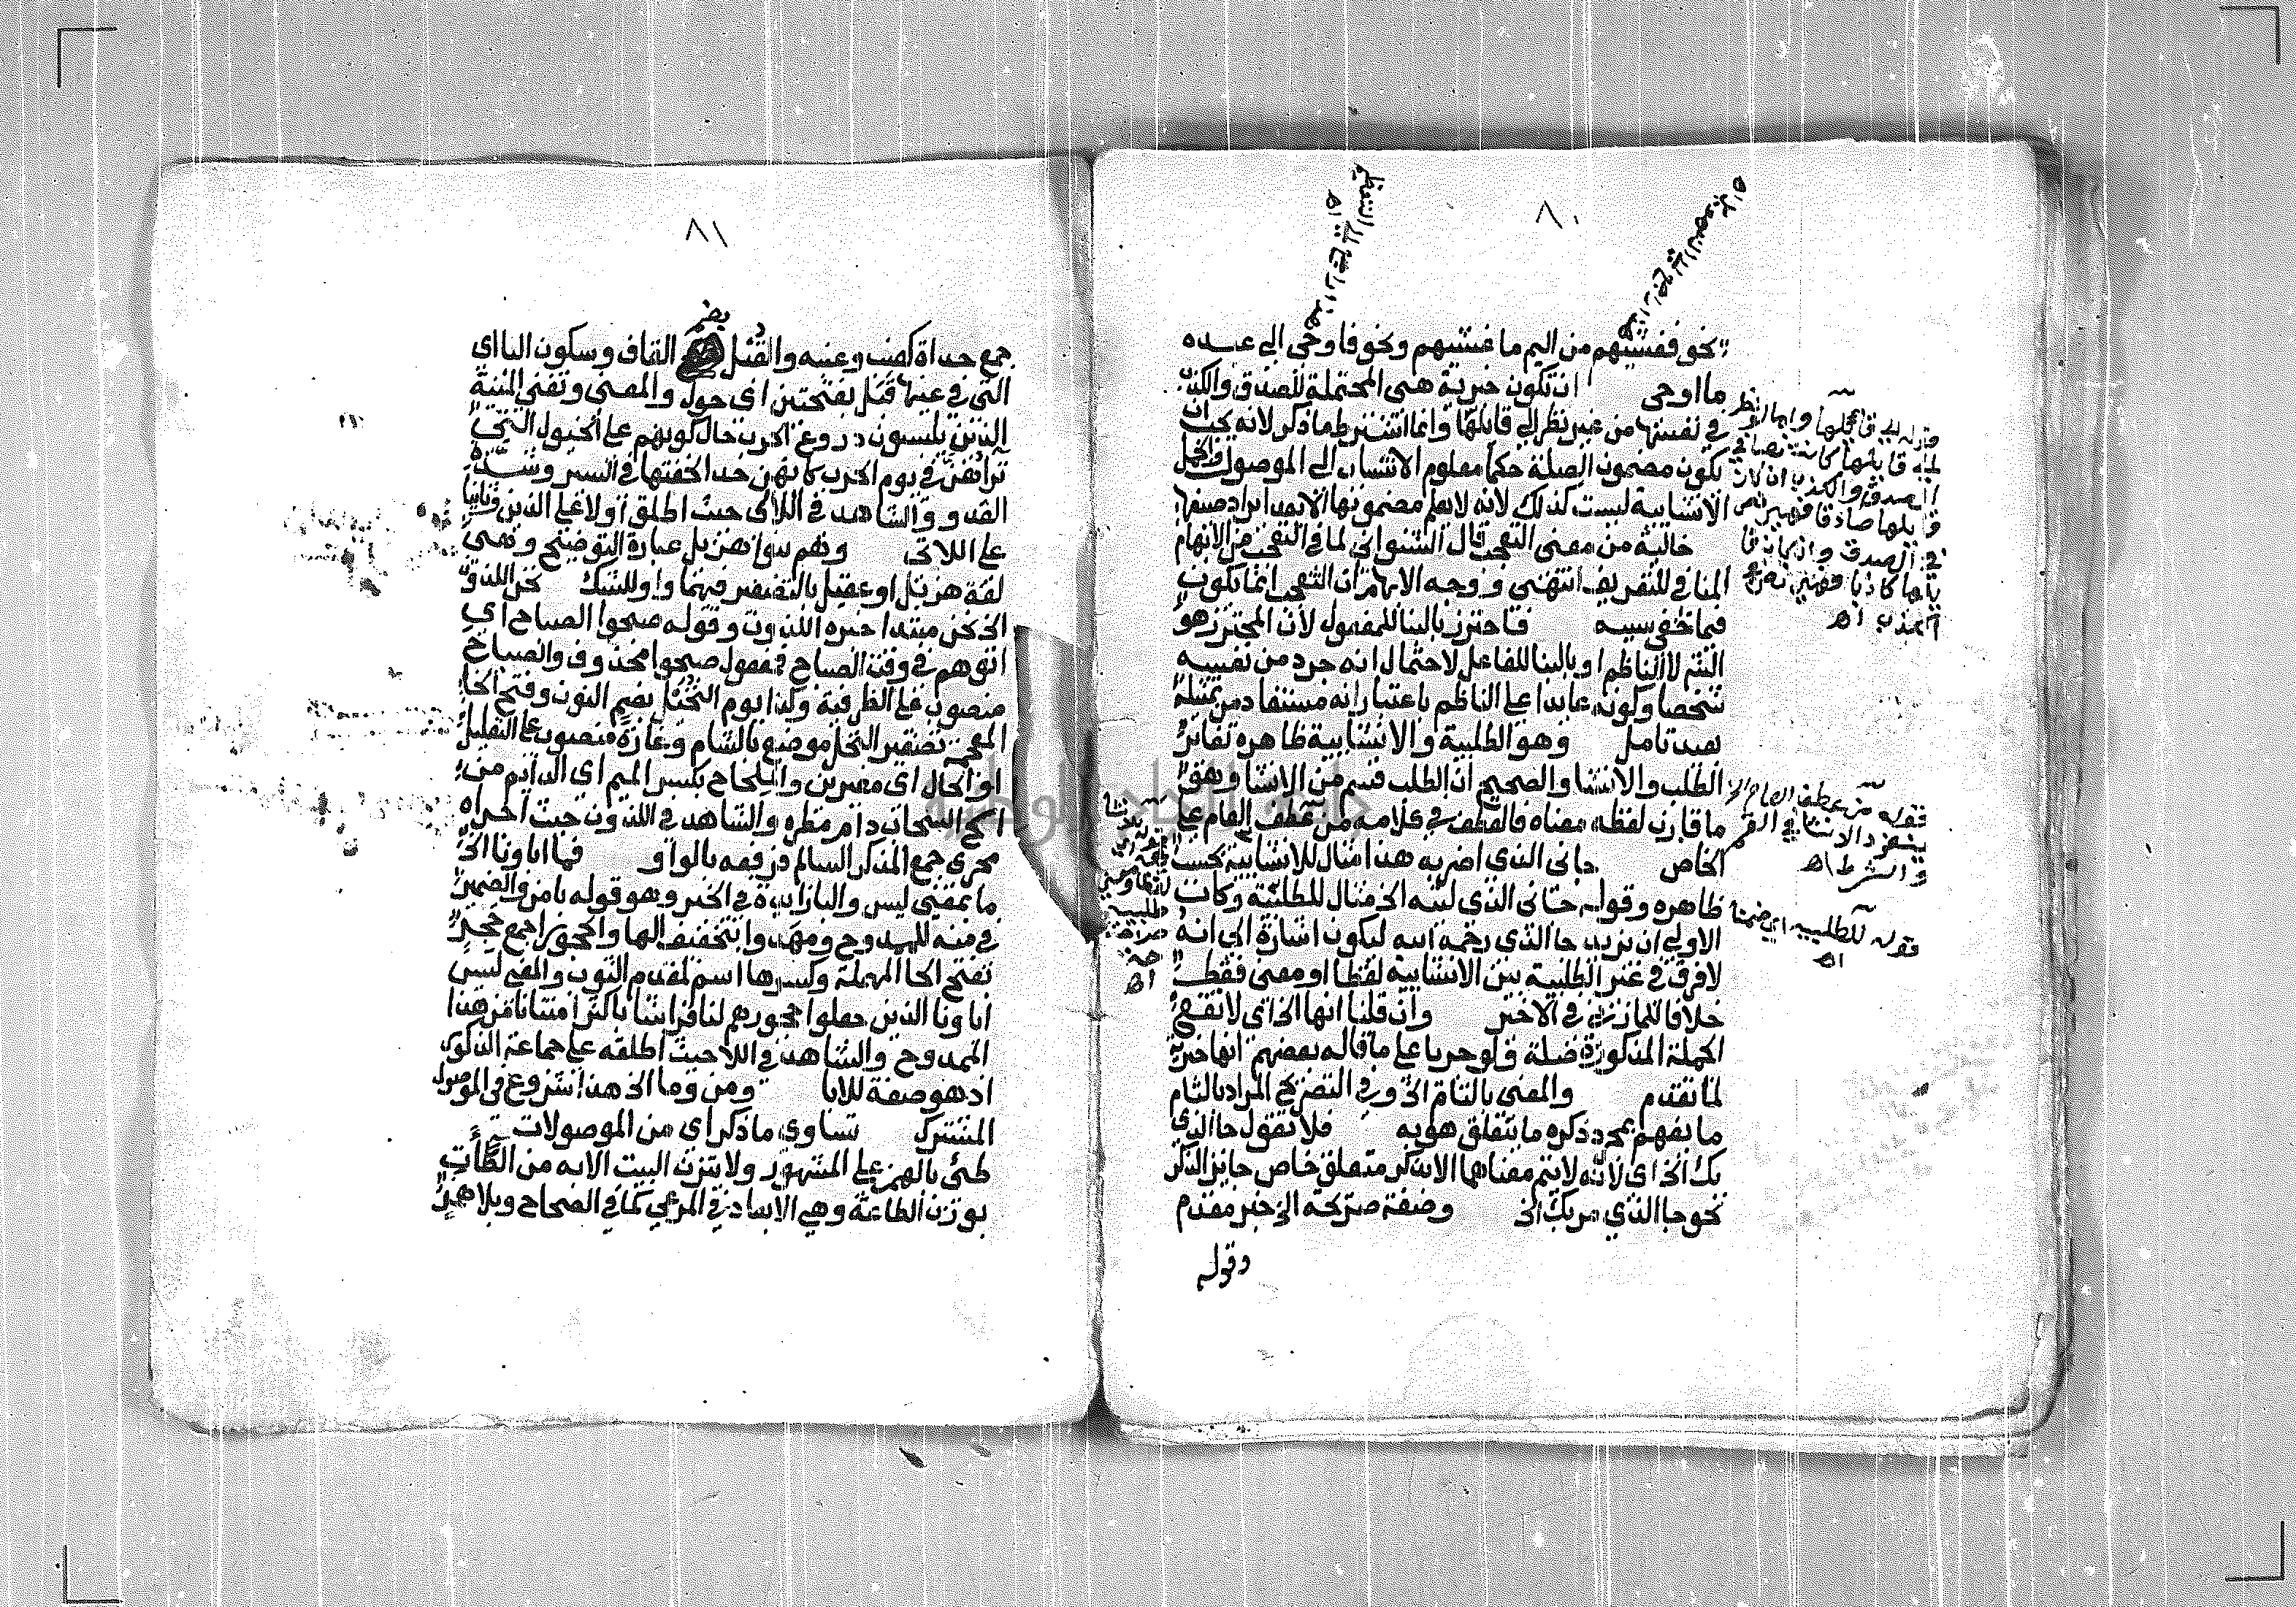 ٨٠
نحو فغشيهم من اليم ما غشيهم ونحو فاوحى الى عبده
ما اوحى ان تكون خبرية هى المحتملة للصدق والكذب
في نفسها من غير نظر الى قايلها وانما اشترط ما ذكر لانه يجب ان
يكون مضمون الصلة حكما معلوم الانتساب الى الموصول والجمل
الانشايية ليست كذلك لانه لا يعلم مضمونها الا بعد ايراد صيغها
خالية من معنى التعجب قال الشنوانى لما في التعجب من الابهام
المنافي للتعريف انتهى ووجه الابهام ان التعجب انما يكون
فيما خفي سببه فاحترز بالبنا للمفعول لان المحترز هو
الش لا الناظم او بالبنا للفاعل لاحتمال انه جرد من نفسه
شخصا وكونه عايدا على الناظم باعتبار انه مستفاد من تمثيله
بعيد تامل وهو الطلبية والانشايية ظاهره تغاير
الطلب والانشا والصحيح ان الطلب قسم من الانشا وهو
ما قارن لفظه معناه فالعطف في كلامه من عطف العام على
الخاص جانى الذى اضربه هذا مثال للانشايية بحسب
ظاهره وقوله جانى الذى ليته الخ مثال للطلبية وكان
الاولى ان يزيد جا الذى رحمه الله ليكون اشارة الى انه
لا فرق في غير الطلبية بين الانشايية لفظا او معنى فقط
خلافا للمازنى في الاخير وان قلنا انها الخ اى لا تقع
الجملة المذكورة صلة ولو جريا على ما قاله بعضهم انها خبرية
لما تقدم والمعنى بالتام الخ وفي التصريح المراد بالتام
ما يفهم بمجرد ذكره ما يتعلق هو به فلا تقول جا الذى
بك الخ اى لانه لا يتم معناها الا بذكر متعلق خاص جايز الذكر
نحو جا الذي مر بك الخ وصفة صريحة الخ خبر مقدم
وقوله
قوله من عطف العام
والشرط اه
قوله للطلبيه اى ضمنا
اه
٨١
جمع حداة كعنب وعنبه والقبل بضم القاف وسكون البا اى
التى في عينها قبل بفتحتين اى حول والمعنى وتفنى المنية
الذين يلبسون دروع الحرب حال كونهم على الخيول التى
تراهن في يوم الحرب كانهن حدا لخفتها في السير وشدة
العدو والشاهد في اللاى حيث اطلق اولا على الذين وثانيا
على اللاتى وهم بنوا هذيل عبارة التوضيح وهى
لغة هذيل او عقيل بالتصغير فيهما واو للشك نحن اللذون
الخ نحن مبتدا خبره اللذون وقوله صبحوا الصباح اى
اتوهم في وقت الصباح فمفعول صبحوا محذوف والصباح
منصوب على الظرفية وكذا يوم النخيل بضم النون وفتح الخا
المعجمة تصغير النخل موضع بالشام وغارة منصوب على التعليل
او الحال اى مغيرين والملحاح بكسر الميم اى الدايم من
الح السحاب دام مطره والشاهد في اللذون حيث اجراه
مجرى جمع المذكر السالم في رفعه بالواو فما اباونا الخ
ما بمعنى ليس والبا زايدة في الخبر وهو قوله بامن والضمير
في منه للممدوح ومهدوا بتخفيف الها والحجور جمع حجر
بفتح الحا المهملة وكسرها اسم لمقدم الثوب والمعنى ليس
اباونا الذين جعلوا حجورهم لنا فراشا باكثر امتنانا من هذا
الممدوح والشاهد في اللا حيث اطلقه على جماعة الذكور
اذ هو صفة للابا ومن وما الخ هذا شروع في الموصول
المشترك تساوى ما ذكر اى من الموصولات
طئ بالهمز على المشهور ولا يتزن البيت الا به من الطاة
بوزن الطاعة وهي الابعاد في المرعي كما في الصحاح وبلا همز